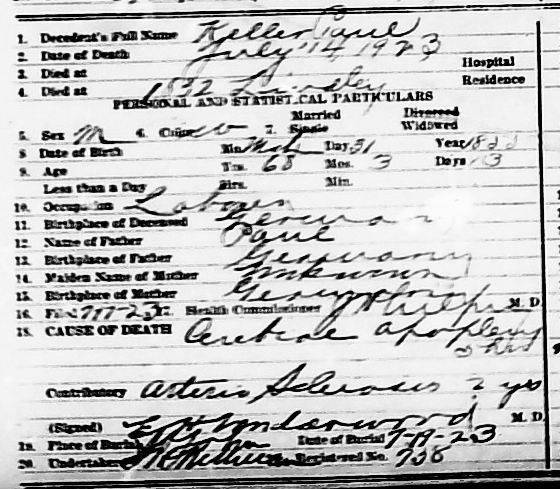 1. Decedent's Full Name Keller Paul
2. Date of Death July 14, 1923
3. Died at Hospital
4. Died at 1832 Lindley Residence
PERSONAL AND STATISTICAL PARTICULARS
Married Divorced
5. Sex M 6. Color w 7. Single Widowed
8 Date of Birth Mo. Mch Day 31 Year
9. Age Yrs. 68 Mos. 3 Days 13
Less than a Day Hrs. Min.
10. Occupation Laborer
11. Birthplace of Deceased German
12. Name of Father Paul
13. Birthplace of Father Germany
14. Maiden Name of Mother Unknown
15. Birthplace of Mother Germany
16. Health Commissioner M. D.
18. CAUSE OF DEATH Cerebral apoplexy
Contributory Arterio Sclerosis 2 yrs
(Signed) Underwood M. D.
19. Place of Burial Date of Burial 7-19-23
20. Undertaker Registered No. 738